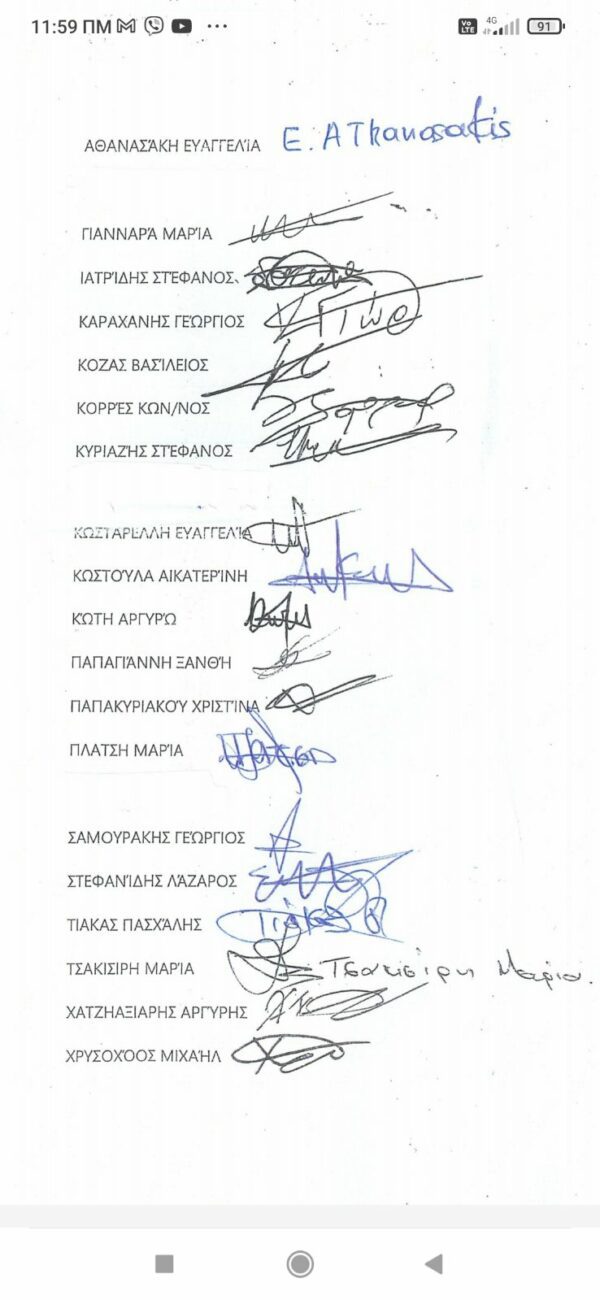 11:59 ΠΜ
Vo LTE 4G 91
ΑΘΑΝΑΣΆΚΗ ΕΥΑΓΓΕΛΊΑ E. AThanasakis
ΓΙΑΝΝΑΡΆ ΜΑΡΊΑ
ΙΑΤΡΊΔΗΣ ΣΤΈΦΑΝΟΣ
ΚΑΡΑΧΑΝΗΣ ΓΕΏΡΓΙΟΣ
ΚΟΖΑΣ ΒΑΣΊΛΕΙΟΣ
ΚΟΡΡΈΣ ΚΩΝ/ΝΟΣ
ΚΥΡΙΑΖΉΣ ΣΤΈΦΑΝΟΣ
ΚΩΣΤΑΡΕΛΛΗ ΕΥΑΓΓΕΛΊΑ
ΚΩΣΤΟΎΛΑ ΑΙΚΑΤΕΡΊΝΗ
ΚΏΤΗ ΑΡΓΥΡΏ
ΠΑΠΑΓΙΆΝΝΗ ΞΑΝΘΉ
ΠΑΠΑΚΥΡΙΑΚΟΎ ΧΡΙΣΤΊΝΑ
ΠΛΑΤΣΗ ΜΑΡΊΑ
ΣΑΜΟΥΡΑΚΗΣ ΓΕΏΡΓΙΟΣ
ΣΤΕΦΑΝΊΔΗΣ ΛΆΖΑΡΟΣ
ΤΙΑΚΑΣ ΠΑΣΧΆΛΗΣ Τιάκας
ΤΣΑΚΙΣΙΡΗ ΜΑΡΊΑ Τσακισίρη Μαρία.
ΧΑΤΖΗΑΞΙΑΡΗΣ ΑΡΓΎΡΗΣ
ΧΡΥΣΟΧΌΟΣ ΜΙΧΑΉΛ